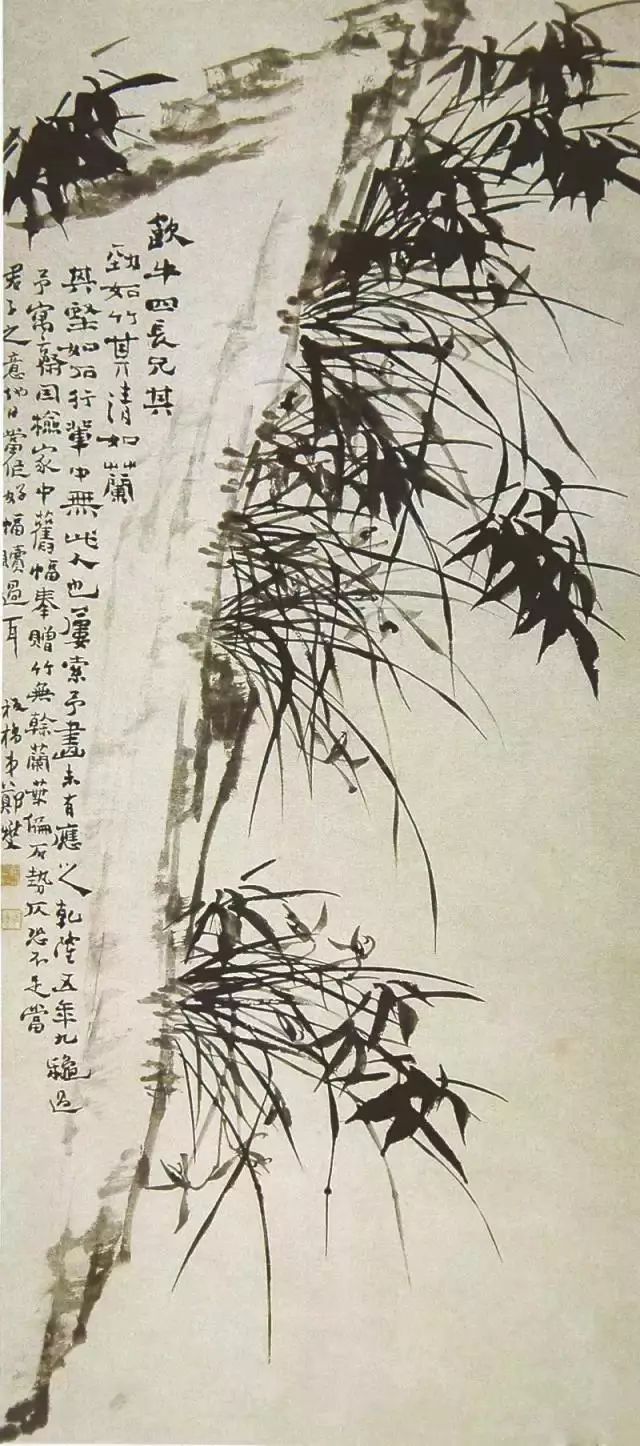 歙牛四長兄其
勁如竹其清如蘭
其堅如石行輩中無此人也屢索予畫未有應之乾隆五年九龝過
予寓齋因檢家中舊幅奉贈竹無餘蘭葉偏石勢仄恐不足當
君子之意他日當作好幅贖過耳　板橋弟鄭燮